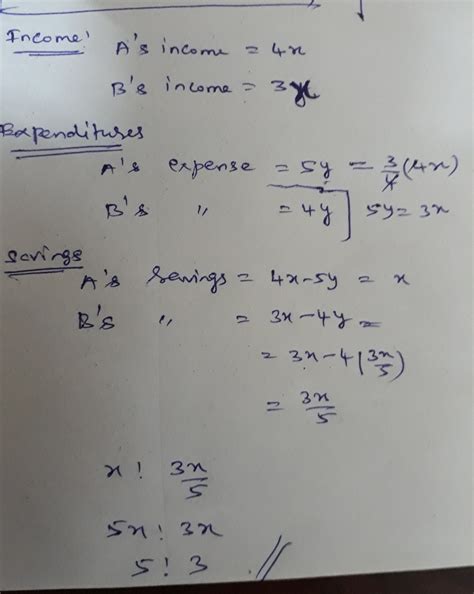 Income: A's income = 4x
B's income = 3x
Expenditures
A's expense = 5y = 3/4 (4x)
B's " = 4y] 5y = 3x
Savings
A's savings = 4x - 5y = x
B's " = 3x - 4y =
= 3x - 4(3x/5)
= 3x/5
x : 3x/5
5x : 3x
5 : 3 //